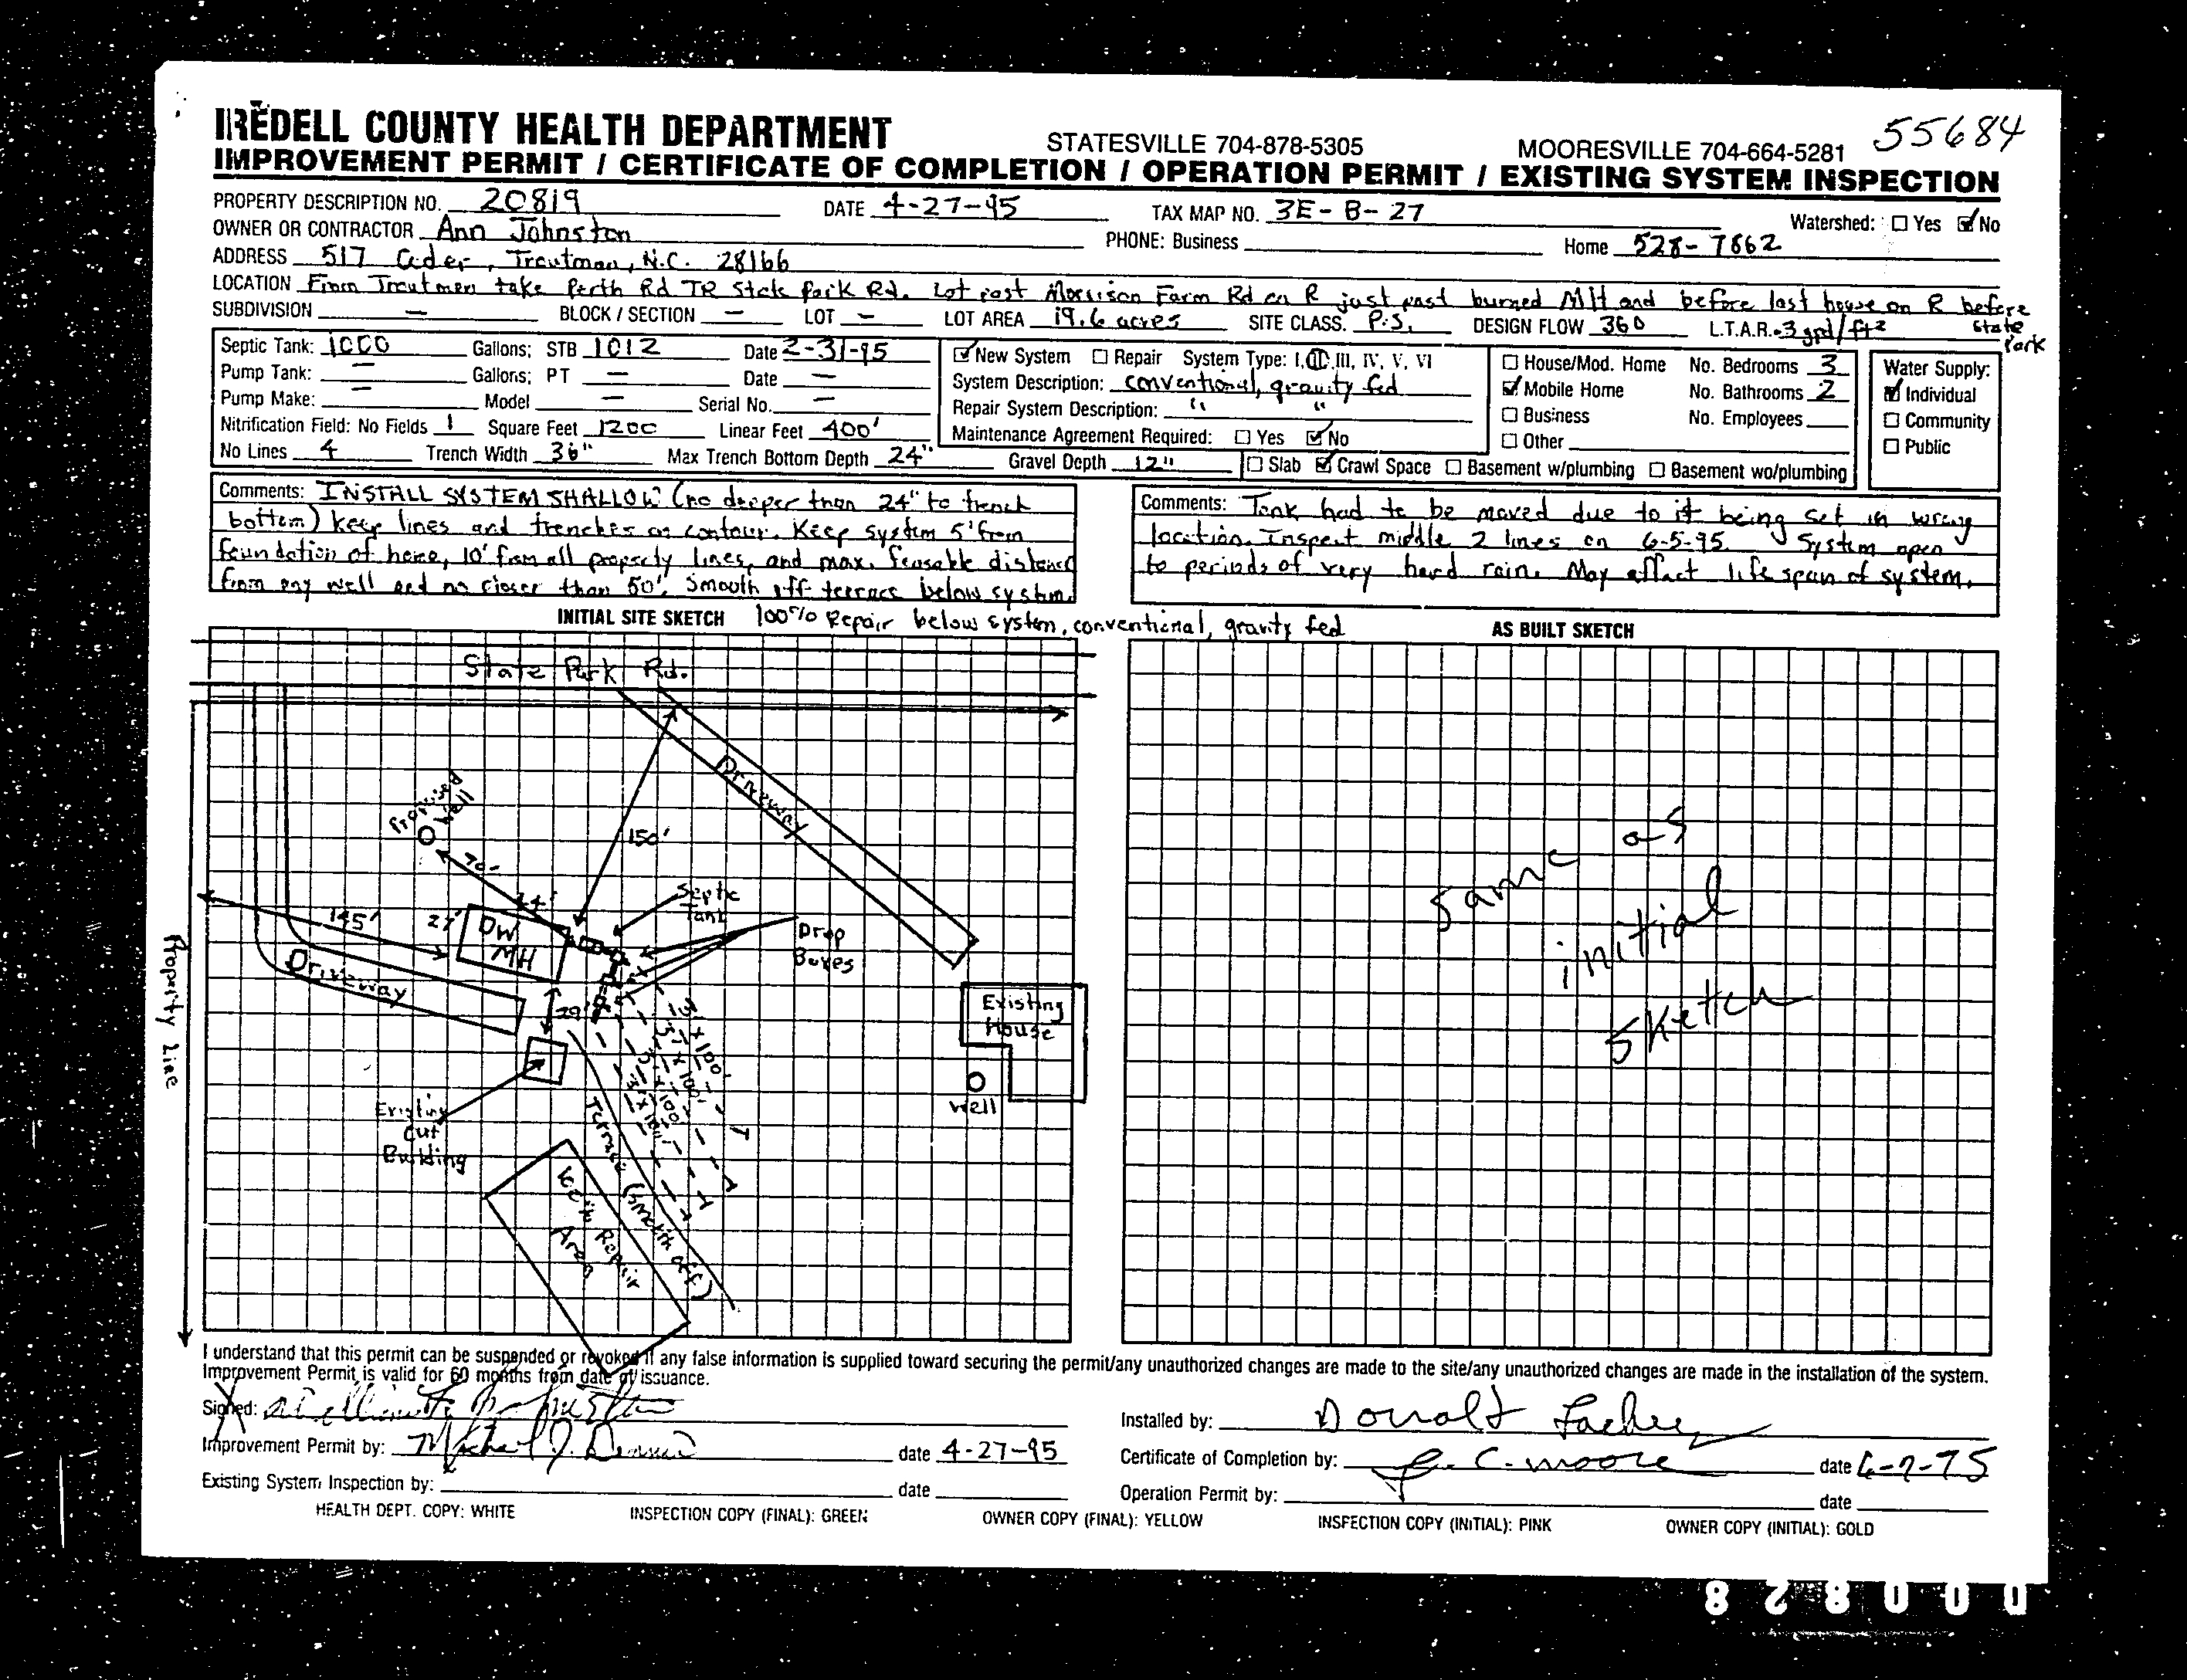 IREDELL COUNTY HEALTH DEPARTMENT STATESVILLE 704-878-5305 MOORESVILLE 704-664-5281 55684
IMPROVEMENT PERMIT / CERTIFICATE OF COMPLETION / OPERATION PERMIT / EXISTING SYSTEM INSPECTION
PROPERTY DESCRIPTION NO. 20819 DATE 4-27-95 TAX MAP NO. 3E-B-27 Watershed: ☐ Yes ☑ No
OWNER OR CONTRACTOR Ann Johnston PHONE: Business Home 528-7862
ADDRESS 517 Ceder, Troutman, N.C. 28166
LOCATION From Troutman take Perth Rd TR State Park Rd. Lot past Morrison Farm Rd on R just past burned MH and before last house on R before State Park
SUBDIVISION — BLOCK / SECTION — LOT — LOT AREA 19.6 acres SITE CLASS. P.S. DESIGN FLOW 360 L.T.A.R. .3 gpd/ft²
Septic Tank: 1000 Gallons; STB 1012 Date 2-31-95
Pump Tank: — Gallons; PT — Date —
Pump Make: — Model — Serial No. —
Nitrification Field: No Fields 1 Square Feet 1200 Linear Feet 400'
No Lines 4 Trench Width 36" Max Trench Bottom Depth 24" Gravel Depth 12"
☑ New System ☐ Repair System Type: I, II, III, IV, V, VI
System Description: conventional, gravity fed
Repair System Description: " "
Maintenance Agreement Required: ☐ Yes ☑ No
☐ Slab ☑ Crawl Space ☐ Basement w/plumbing ☐ Basement wo/plumbing
☐ House/Mod. Home No. Bedrooms 3
☑ Mobile Home No. Bathrooms 2
☐ Business No. Employees
☐ Other
Water Supply:
☑ Individual
☐ Community
☐ Public
Comments: INSTALL SYSTEM SHALLOW (no deeper than 24" to trench
bottom) keep lines and trenches on contour. Keep system 5' from
foundation of home, 10' from all property lines, and max. feasable distance
from any well and no closer than 50'. Smooth off terrace below system.
100% Repair below system, conventional, gravity fed
Comments: Tank had to be moved due to it being set in wrong
location. Inspect middle 2 lines on 6-5-95. System open
to periods of very hard rain. May affect life span of system.
INITIAL SITE SKETCH
State Park Rd.
Driveway
Proposed Well
150'
70'
24'
Septic Tank
145'
27'
DW MH
Drop Boxes
Driveway
29'
Existing House
3' x 100'
3' x 100'
3' x 100'
3' x 100'
Well
Property Line
Existing Out Building
Terrace (smooth off)
100% Repair Area
AS BUILT SKETCH
Same as
initial
sketch
I understand that this permit can be suspended or revoked if any false information is supplied toward securing the permit/any unauthorized changes are made to the site/any unauthorized changes are made in the installation of the system.
Improvement Permit is valid for 60 months from date of issuance.
Signed:
Improvement Permit by: Michael J. date 4-27-95
Existing System Inspection by: date
Installed by: Donald
Certificate of Completion by: C. Moore date 6-7-95
Operation Permit by: date
HEALTH DEPT. COPY: WHITE INSPECTION COPY (FINAL): GREEN OWNER COPY (FINAL): YELLOW INSPECTION COPY (INITIAL): PINK OWNER COPY (INITIAL): GOLD
000828